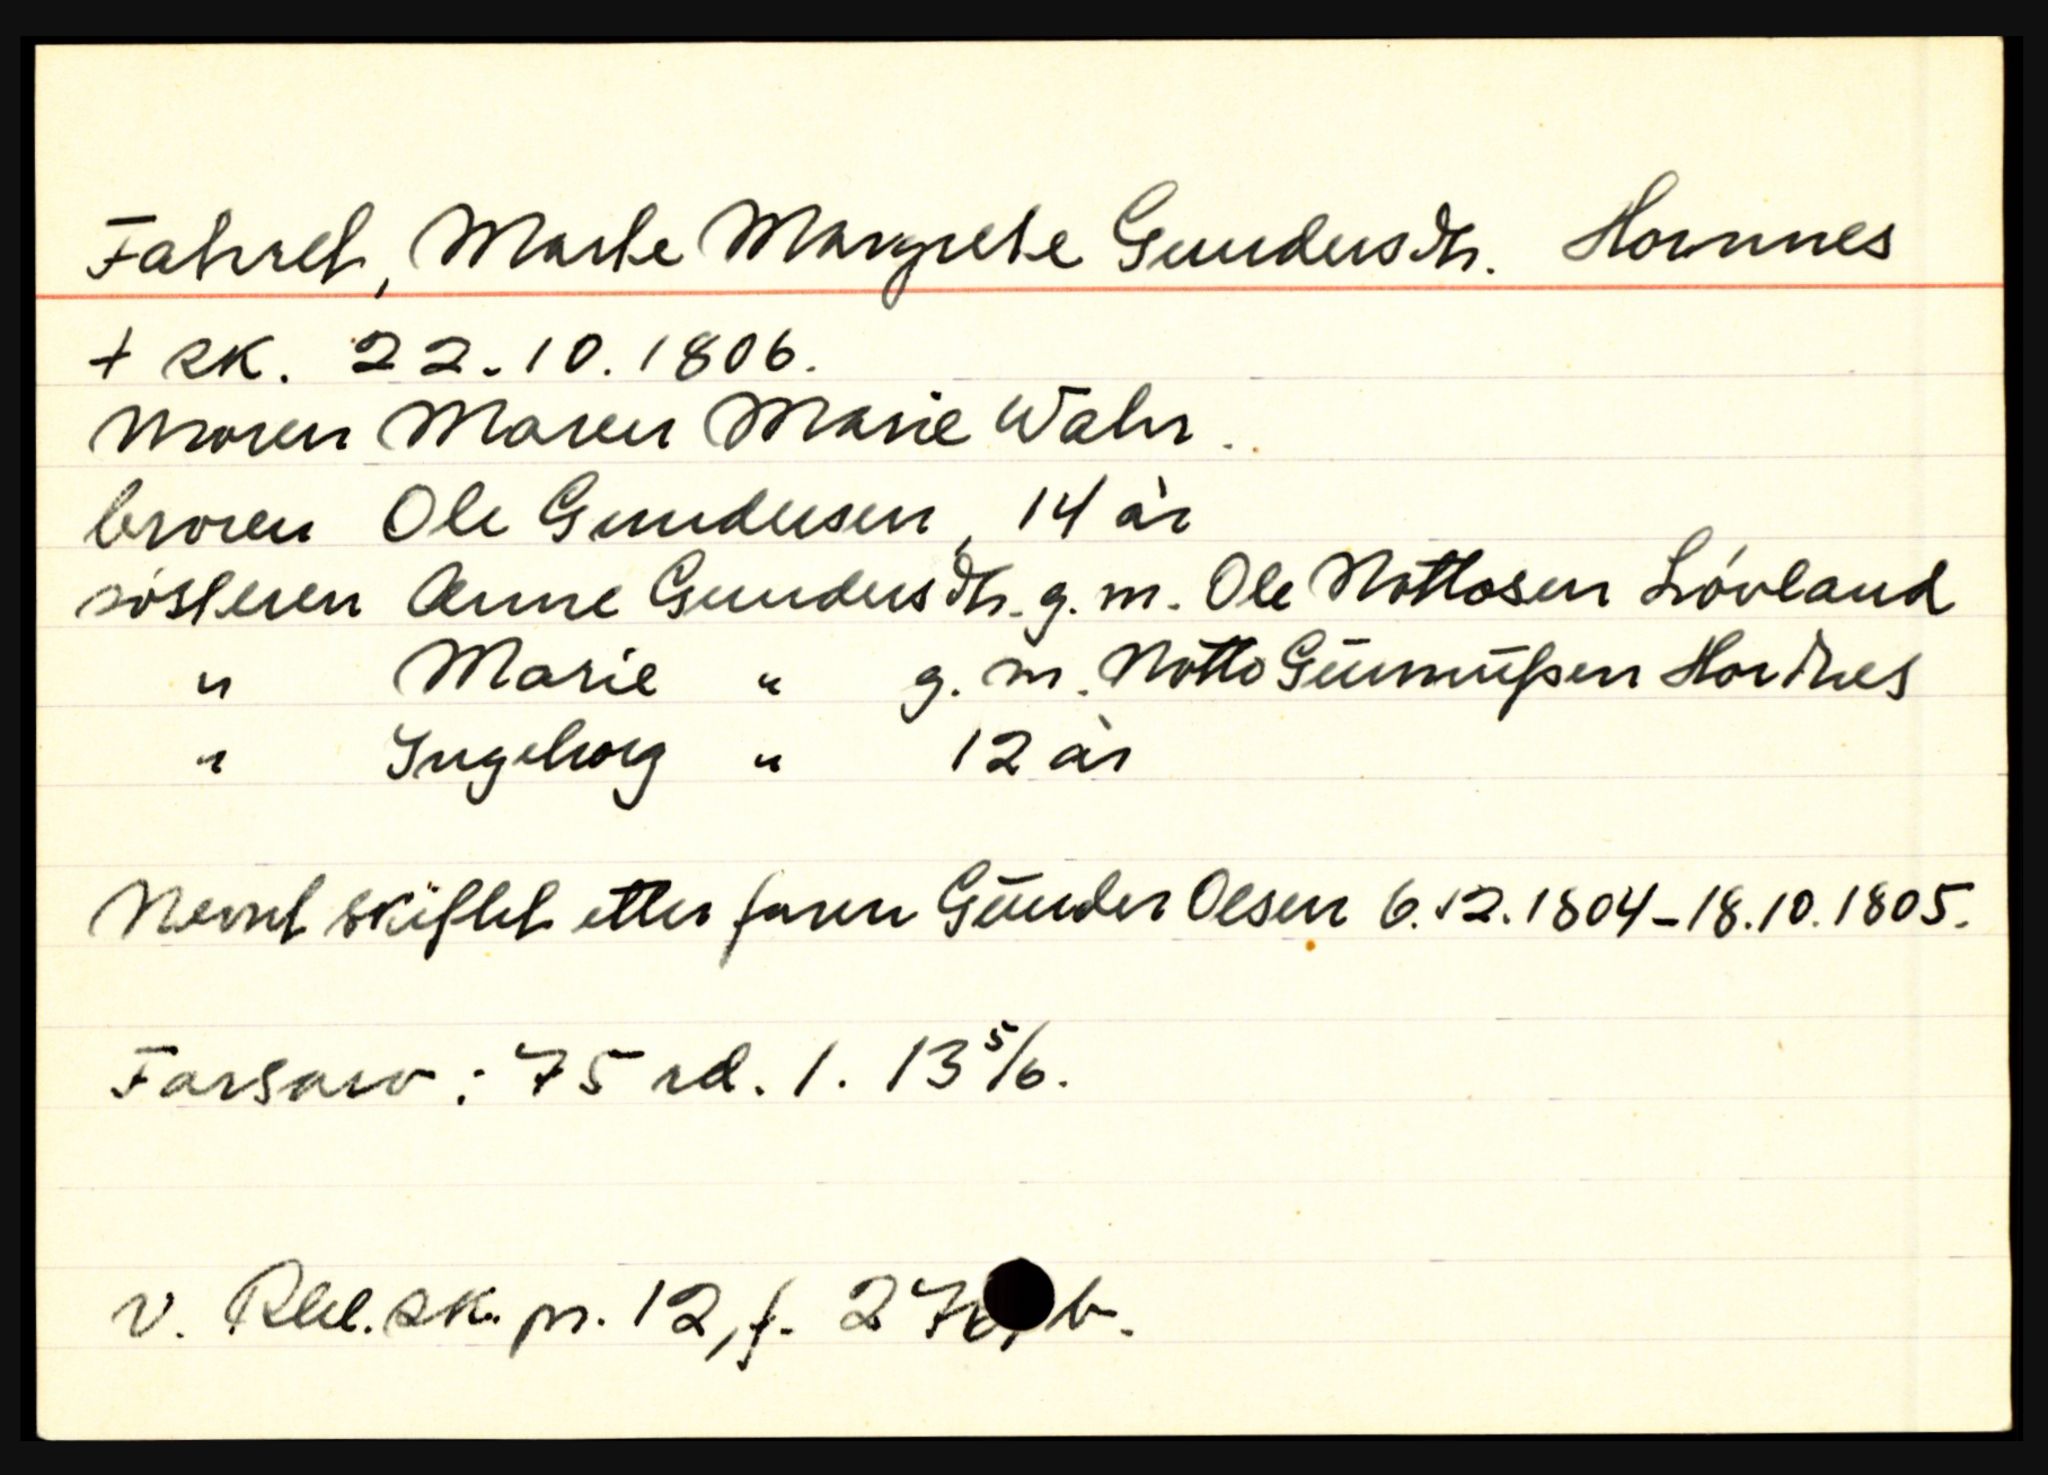 Fahret, Marte Margrete Gundersdtr. Hornnes
+ sk. 22.10.1806.
Moren Maren Marie Wahr.
broren Ole Gundersen, 14 år
søsteren Anne Gundersdtr. g. m. Ole Nottosen Løvland
" Marie " g. m. Notto Gunnufsen Hordnes
" Ingeborg " 12 år
Nevnt skiftet etter faren Gunder Olsen 6.12.1804-18.10.1805.
Farsarv: 75 rd. 1. 13 5/6.
v. Rbl. sk. pr. 12, f. b.